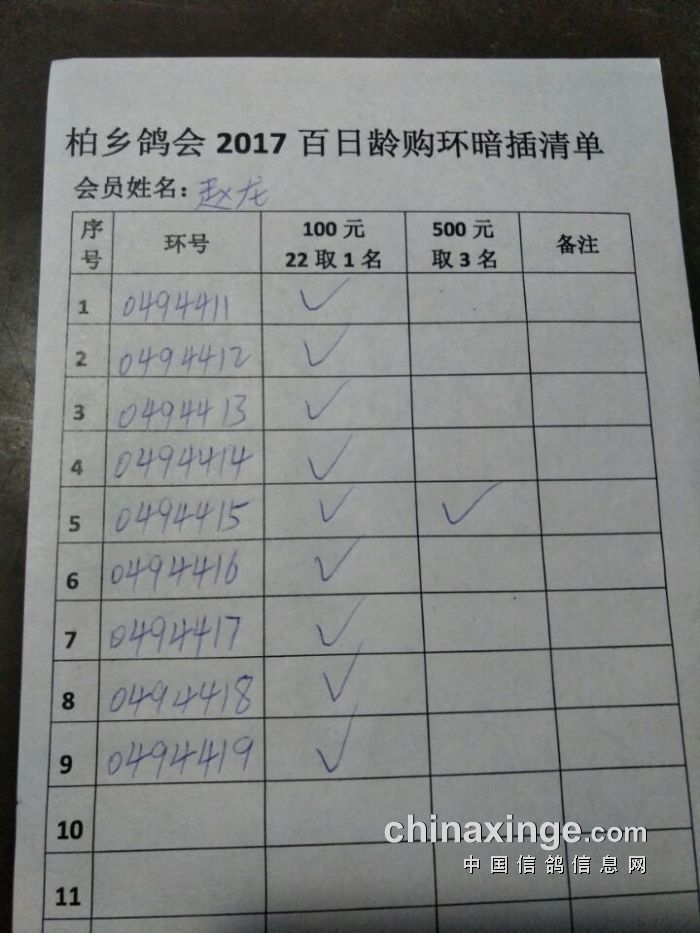 柏乡鸽会 2017 百日龄购环暗插清单
会员姓名：赵龙
序号 环号 100 元 22 取 1 名 500 元 取 3 名 备注
1 0494411 ✓
2 0494412 ✓
3 0494413 ✓
4 0494414 ✓
5 0494415 ✓ ✓
6 0494416 ✓
7 0494417 ✓
8 0494418 ✓
9 0494419 ✓
10
11
chinaxinge.com
中国信鸽信息网